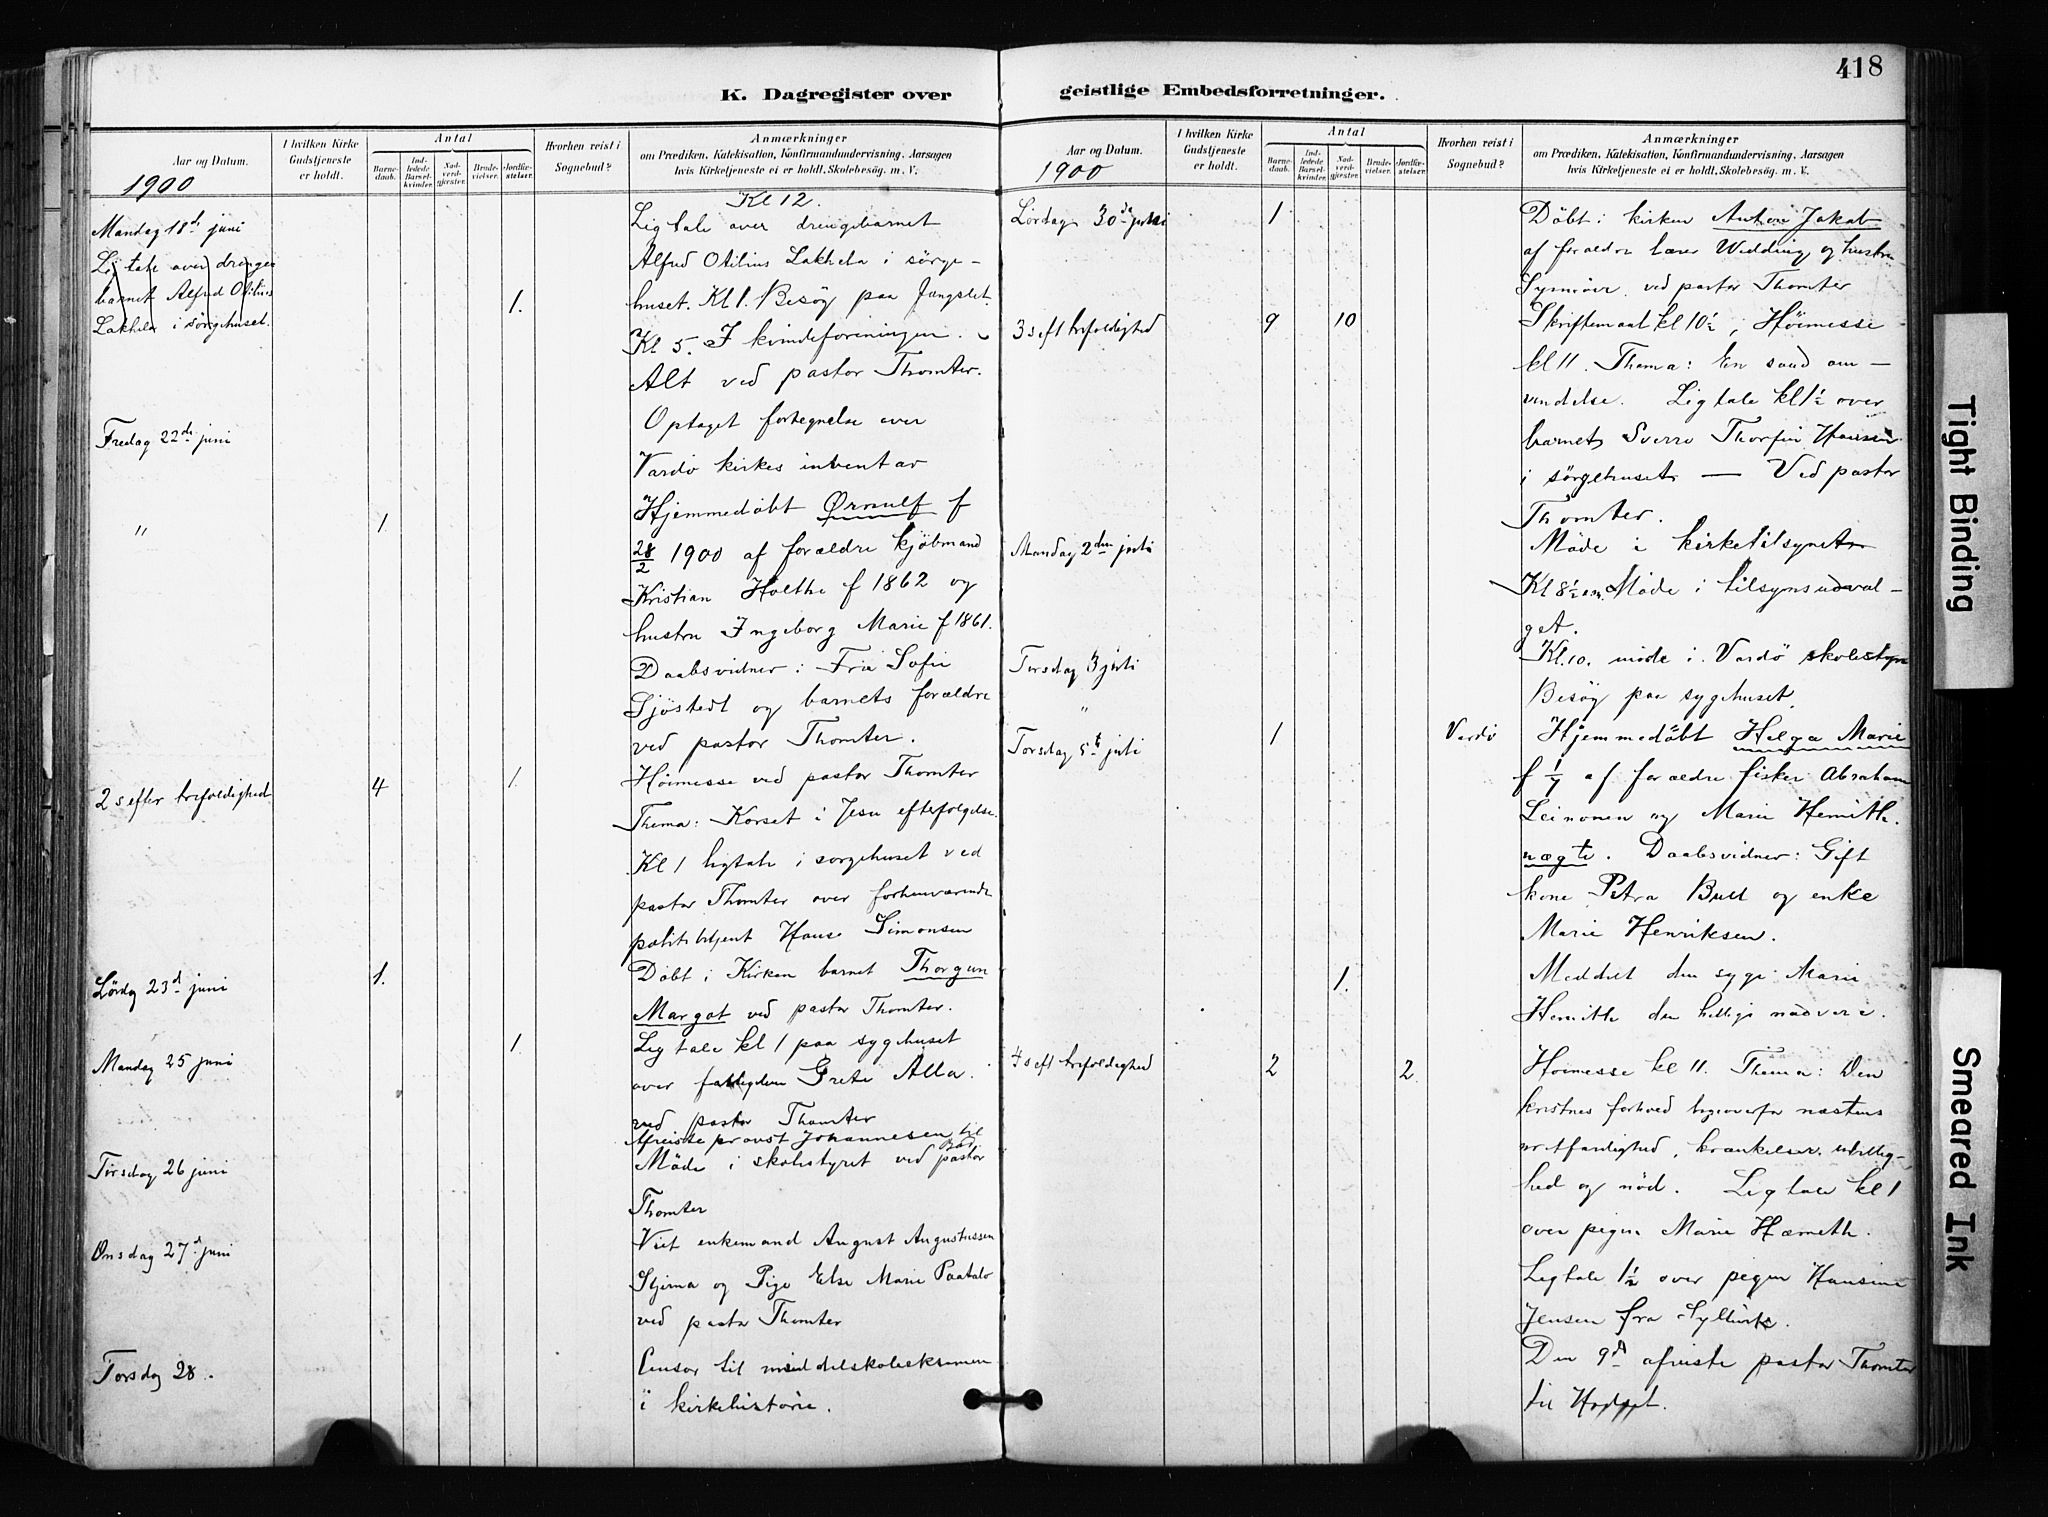 418
K. Dagregister over
geistlige Embedsforretninger.
Aar og Datum.
1900
I hvilken Kirke Gudstjeneste er holdt.
Antal
Barnedaab.
Indledede Barselkvinder.
Nadverdgjester.
Brudevielser.
Jordfæstelser.
Hvorhen reist i Sognebud?
Anmærkninger
om Prædiken, Katekisation, Konfirmandundervisning, Aarsagen
hvis Kirketjeneste ei er holdt, Skolebesøg. m. V.
Mandag 18de juni
Ligtale over drenge
barnet Alfred Otilius
Lakhela i sørgehuset.
1.
Kl 12.
Ligtale over drengebarnet
Alfred Otilius Lakhela i sørge-
huset. Kl 1. Besøg paa fængslet.
Kl 5. I kvindeforeningen.
Alt ved pastor Thomter.
Fredag 22de juni
Optaget fortegnelse over
Vardø kirkes inventar
" 1
Hjemmedøbt Ørnulf f
28/2 1900 af forældre kjøbmand
Kristian Holthe f 1862 og
hustru Ingeborg Marie f 1861.
Daabsvidner: Frk Sofie
Sjøstedt og barnets forældre
ved pastor Thomter.
2 s efter trefoldighed 4 1.
Høimesse ved pastor Thomter
Thema: Korset i Jesu efterfølgelse.
Kl 1 ligtale i sørgehuset ved
pastor Thomter over forhenværende
politibetjent Hans Simonsen
Lørdag 23d juni 1.
Døbt i Kirken barnet Thorgun
Margot ved pastor Thomter.
Mandag 25 juni 1
Ligtale kl 1 paa sygehuset
over fattiglem Grete Alla.
ved pastor Thomter
Afreiste provst Johannesen til
Tirsdag 26 juni
Møde i skolestyret ved pastor
Thomter
Onsdag 27d juni
Viet enkemand August Augustussen
Stjerna og Pige Else Marie Paatalo
ved pastor Thomter
Torsdag 28.
Censor til middelskoleeksamen
i kirkehistorie.
Aar og Datum.
1900
I hvilken Kirke Gudstjeneste er holdt.
Antal
Barnedaab.
Indledede Barselkvinder.
Nadverdgjester.
Brudevielser.
Jordfæstelser.
Hvorhen reist i Sognebud?
Anmærkninger
om Prædiken, Katekisation, Konfirmandundervisning, Aarsagen
hvis Kirketjeneste ei er holdt, Skolebesøg. m. V.
Lørdag 30de juni 1
Døbt i kirken Anton Jakob
af forældre lærer Wedding og hustru
ved pastor Thomter
3 s eft trefoldighed 9 10
Skriftemaal kl 10½, Høimesse
kl 11. Thema: En sand om-
vendelse. Ligtale kl 1½ over
barnet Sverre Thorfin Hansen
i sørgehuset — Ved pastor
Thomter.
Mandag 2den juli
Møde i kirketilsynet
Kl 8½ em. Møde i tilsynsudval-
get.
Tirsdag 3 juli
Kl. 10. møde i Vardø skolestyre
"
Besøg paa sygehuset.
Torsdag 5te juli 1 Vardø
Hjemmedøbt Helga Marie
f 1/7 af forældre fisker Abraham
Leinonen og Marie Hemith.
nægte. Daabsvidner: Gift
kone Petra Bull og enke
Marie Henriksen.
1.
Meddelt den syge Marie
Hemith den hellige nadvere.
4 s eft trefoldighed 2 2
Høimesse kl 11. Thema: Den
kristnes forhold ligeoverfor næstens
uretfærdighed, krænkelser, ubillig-
hed og nød. Ligtale kl 1
over pigen Marie Hemeth.
Ligtale 1½ over pigen Hansine
Jensen fra
Den 9de afreiste pastor Thomter
til
Tight Binding
Smeared Ink